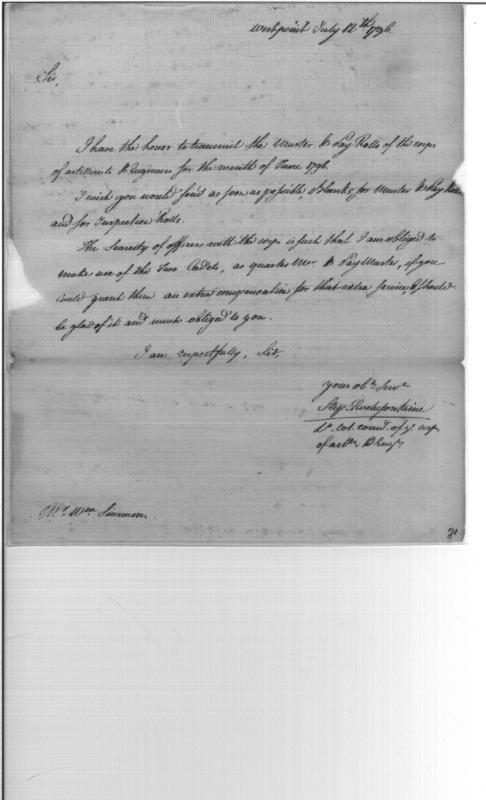 Westpoint July 12th 1796.
Sir,
I have the honor to transmit the Muster & Pay Rolls of the corps
of artillerists & Engineers for the month of June 1796.
I wish you would send as soon as possible, Blanks for Muster & Pay Rolls
and for Inspection Rolls.
The Scarcity of officers with the corps is such that I am obliged to
make use of the Two Cadets, as quarter Mer. & PayMaster, if you
could grant them an extra compensation for that extra service, I should
be glad of it and much obliged to you.
I am respectfully, Sir,
your obt. Servt.
Step. Rochefontaine
Lt. col. comdt. of ye. corps
of artts. & Engrs.
Mr. Wm. Simmons